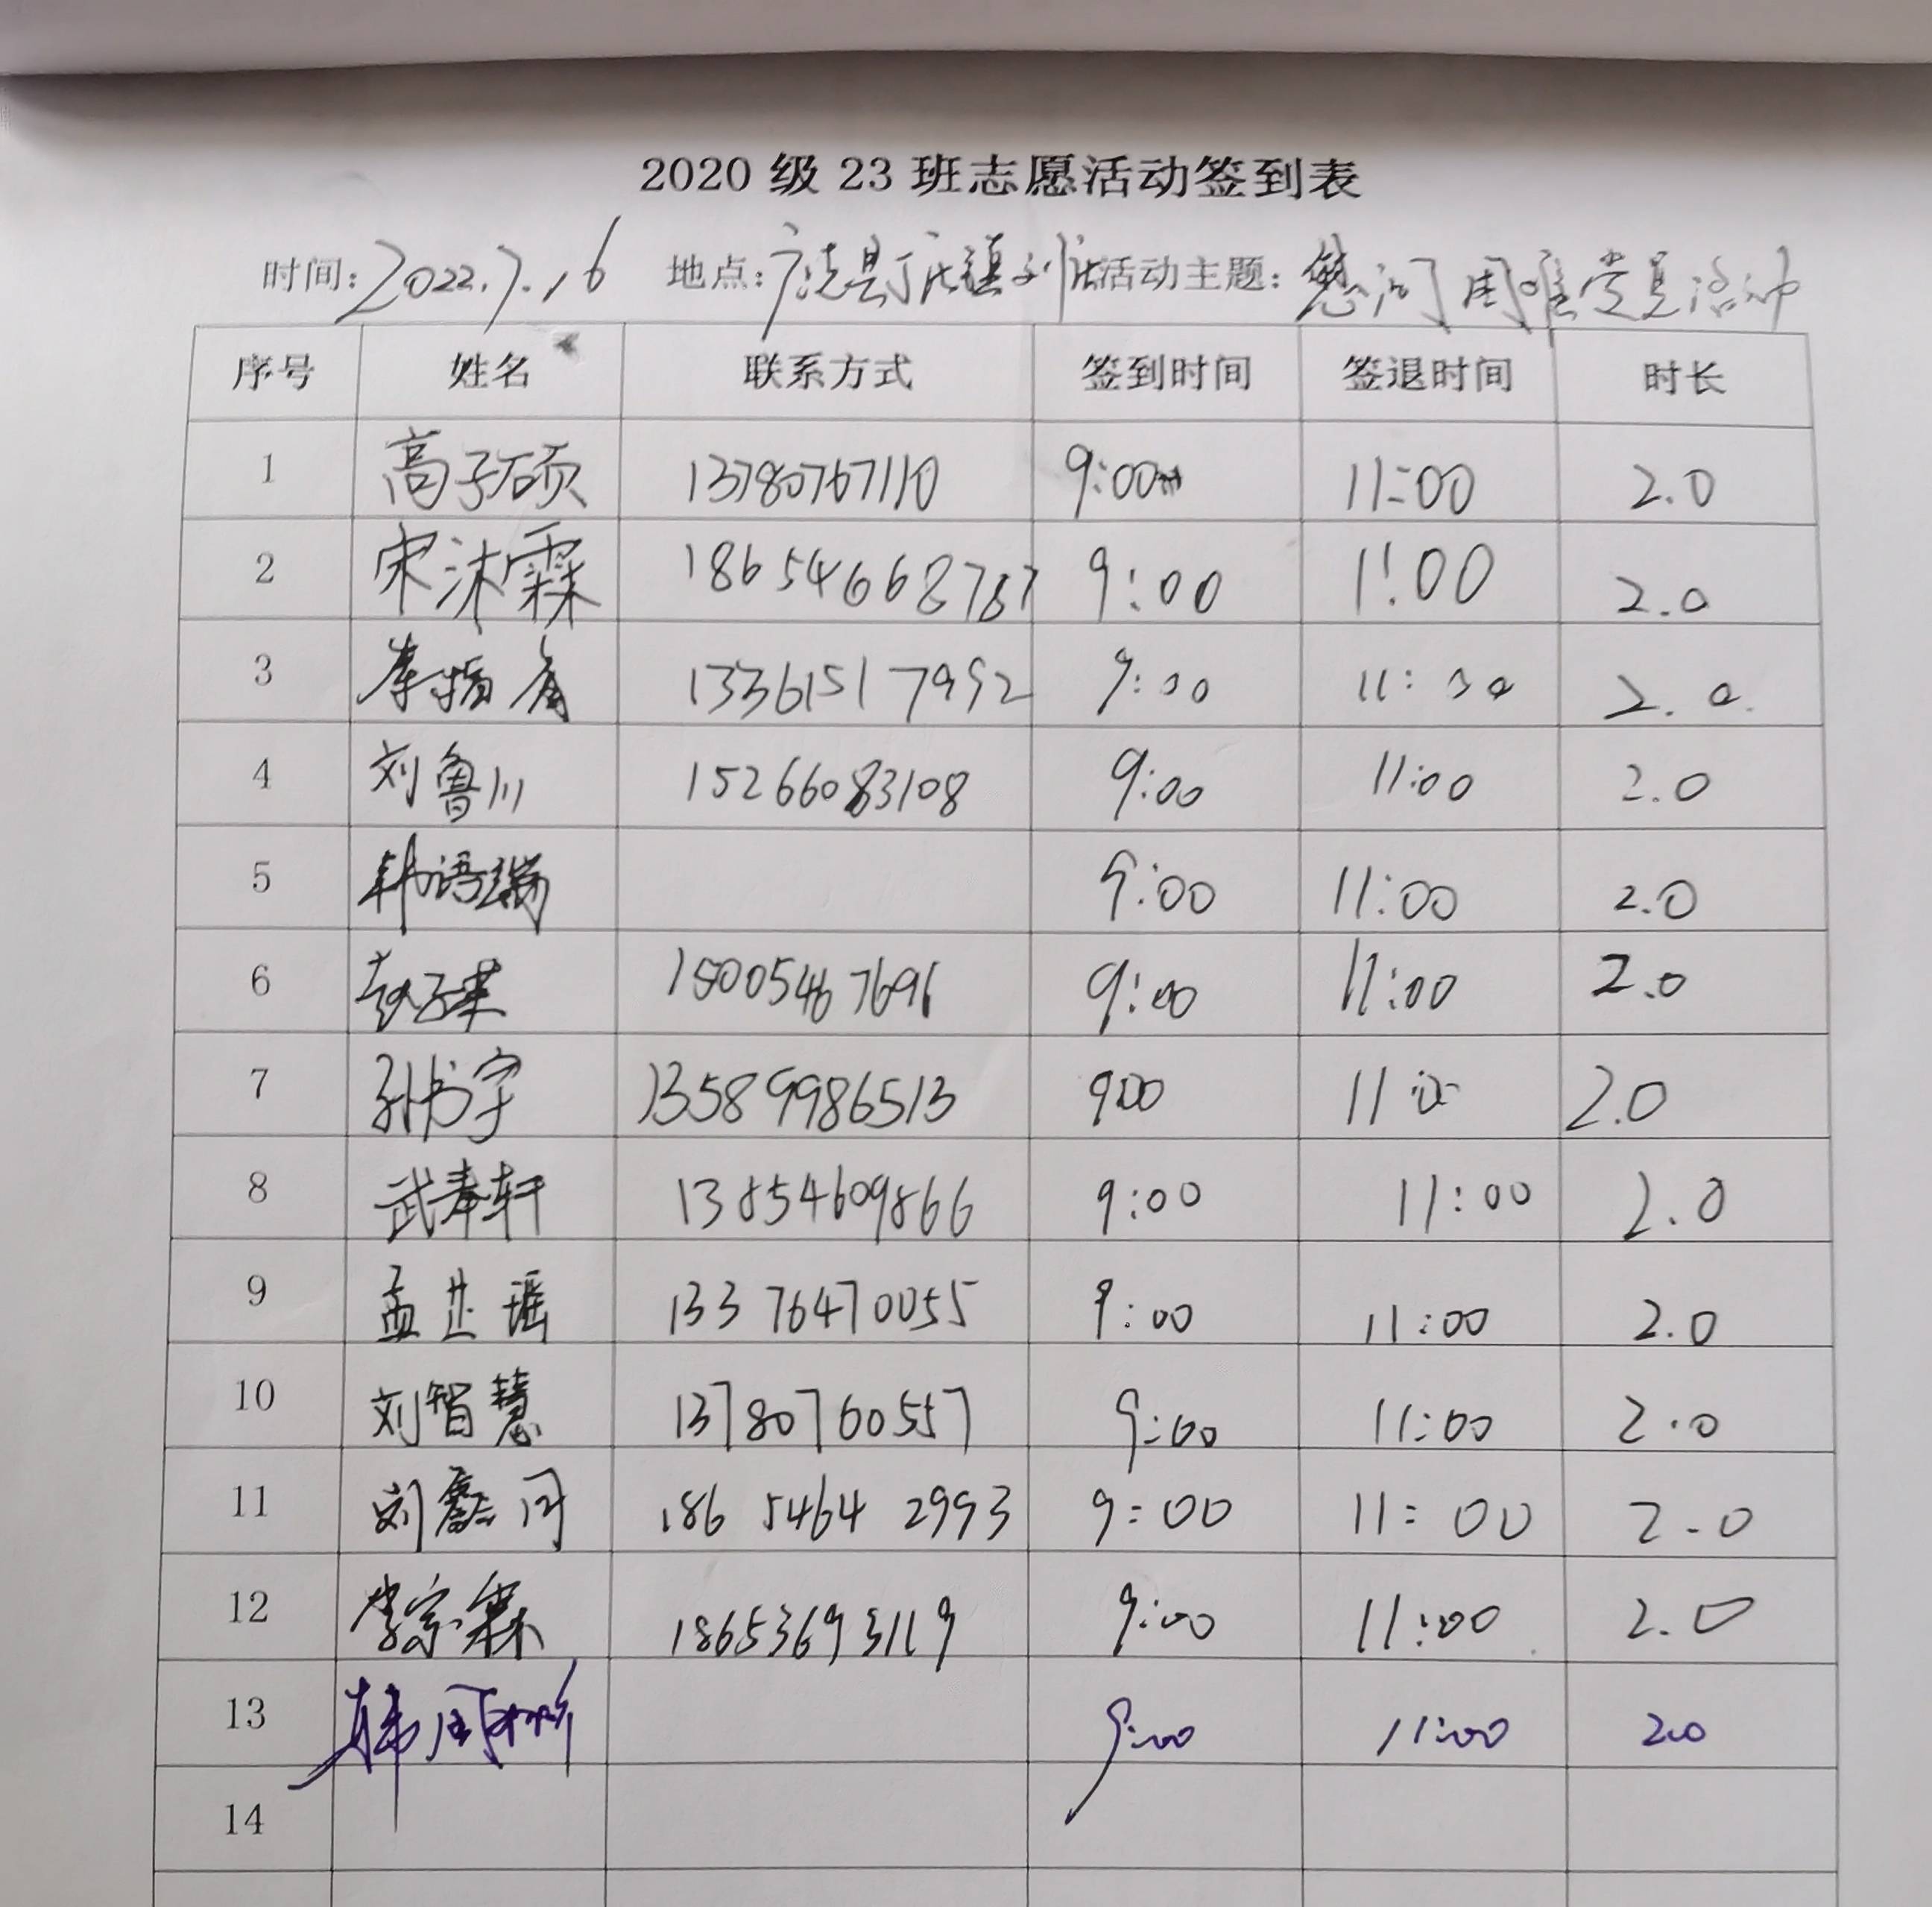 2020 级 23 班志愿活动签到表
时间: 2022.7.16 地点: 广饶县丁庄镇 活动主题: 慰问困难党员活动
序号 姓名 联系方式 签到时间 签退时间 时长
1 高子硕 13780767110 9:00 11:00 2.0
2 宋沐霖 18654668787 9:00 11:00 2.0
3 李 13361517992 9:00 11:00 2.0
4 刘鲁川 15266083108 9:00 11:00 2.0
5 韩语瑞 9:00 11:00 2.0
6 赵子 15005467696 9:00 11:00 2.0
7 孙书宇 13589986513 9:00 11:00 2.0
8 武奉轩 13854609866 9:00 11:00 2.0
9 孟芷瑶 13376470055 9:00 11:00 2.0
10 刘智慧 13780760557 9:00 11:00 2.0
11 刘 同 186 5464 2993 9:00 11:00 2.0
12 李宗霖 18653693119 9:00 11:00 2.0
13 韩 9:00 11:00 2.0
14